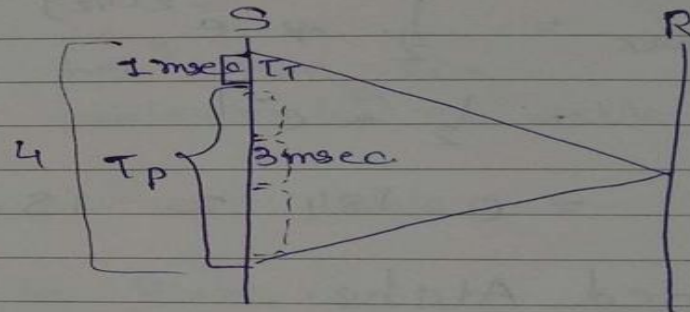 S R
1 msec TT
4 Tp 3 msec